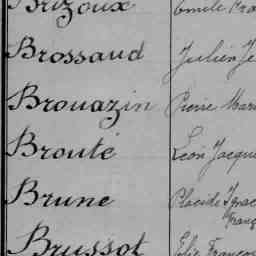 Brizoux Emile
Brossaud Julien
Brouazin Pierre Mari
Brouté Léon Jacque
Brune Placide Ignac
Franç
Brussot Félix Franço